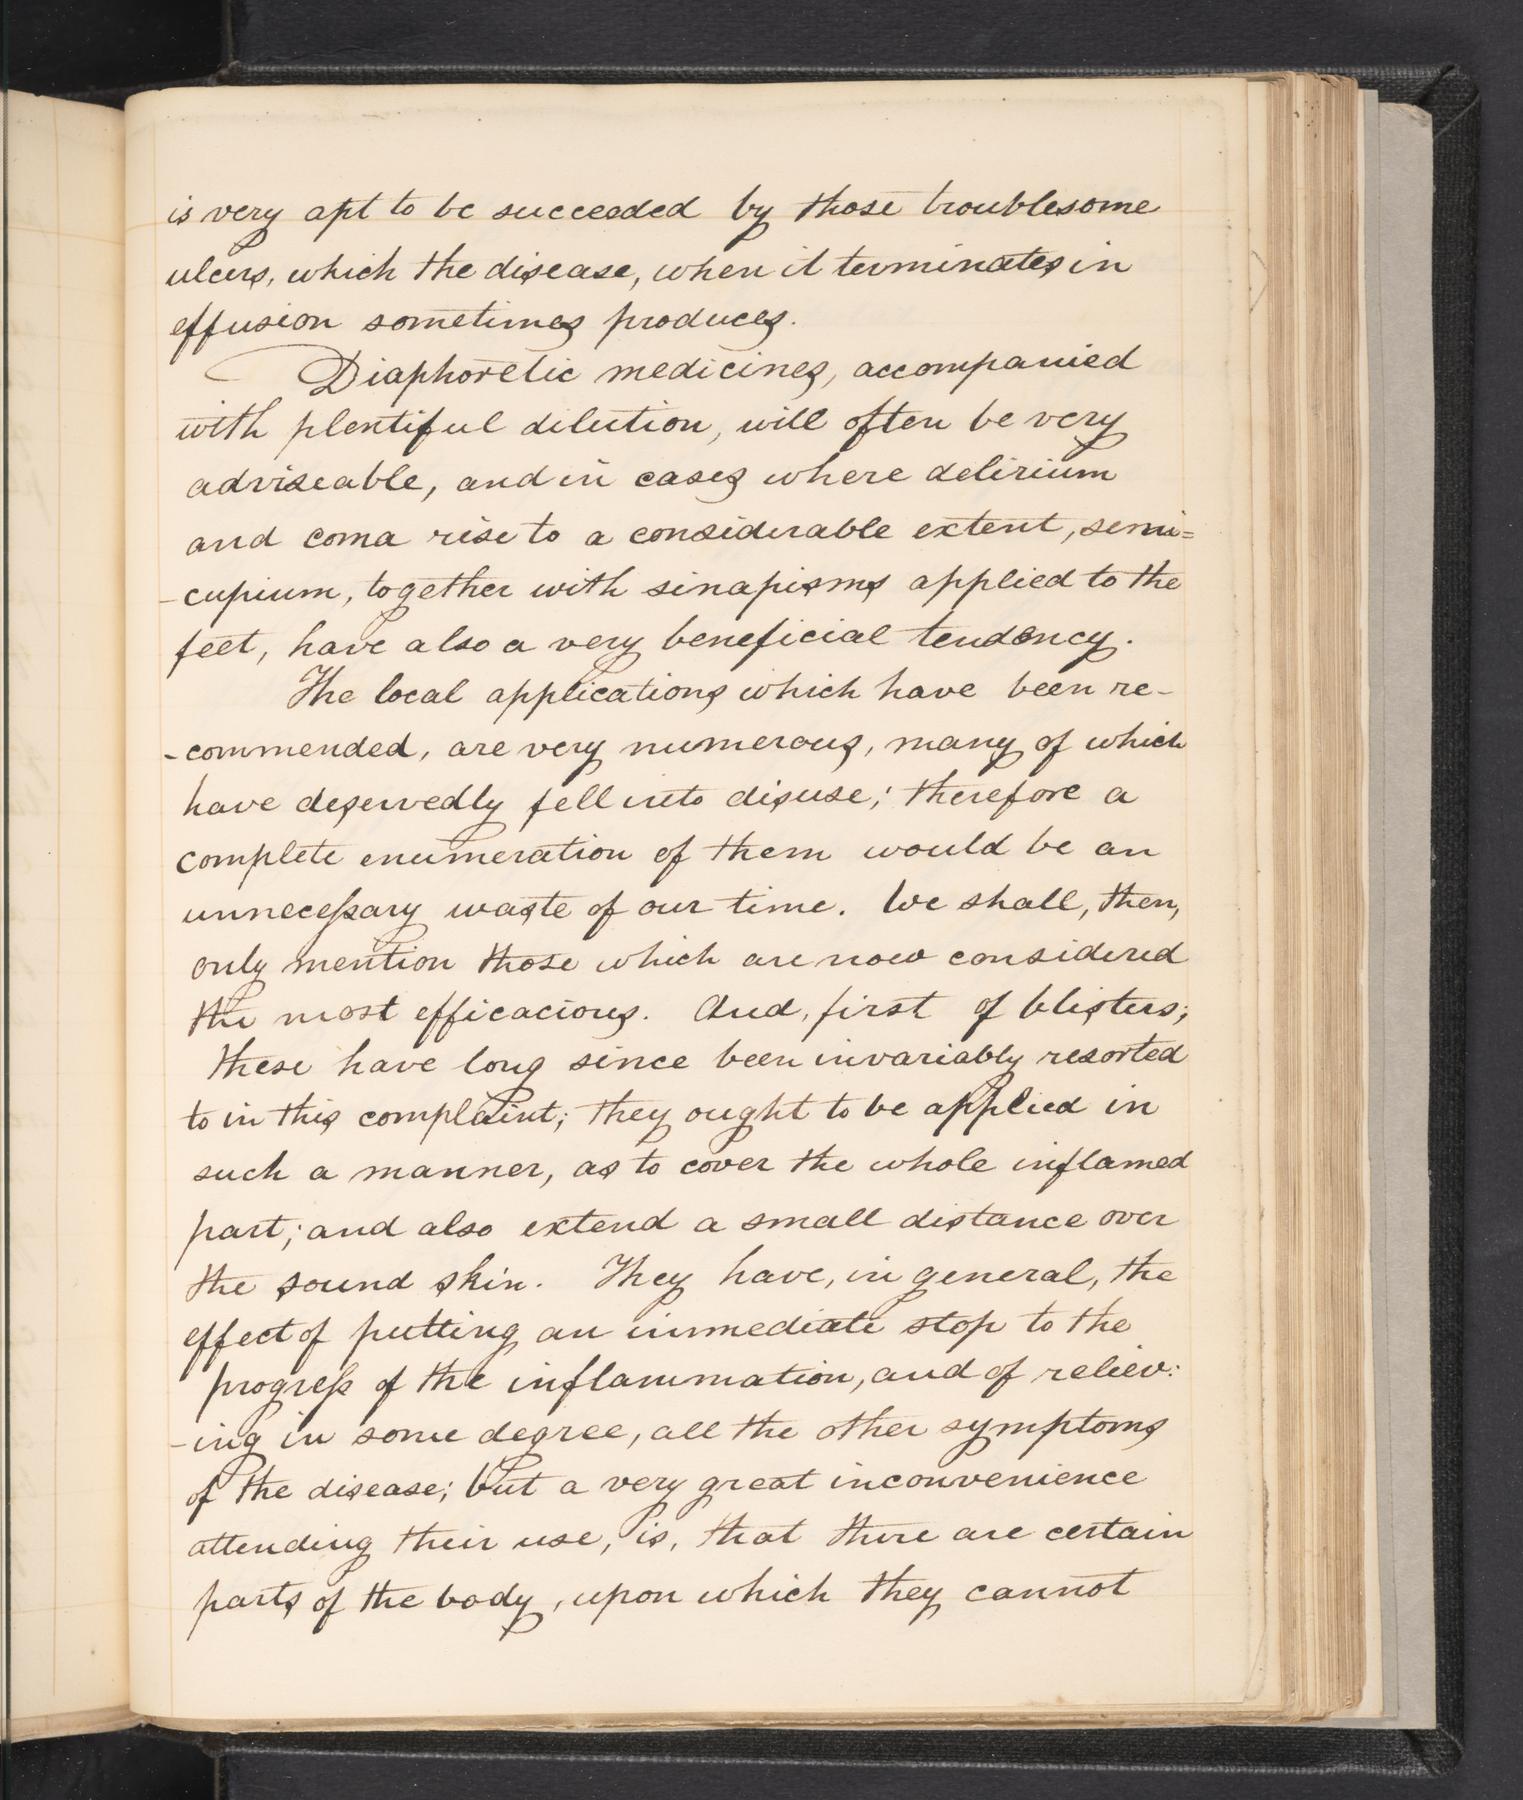 is very apt to be succeeded by those troublesome
ulcers, which the disease, when it terminates in
effusion sometimes produces.
Diaphoretic medicines, accompanied
with plentiful dilution, will often be very
adviseable, and in cases where delirium
and coma rise to a considerable extent, semi=
-cupium, together with sinapisms applied to the
feet, have also a very beneficial tendency.
The local applications which have been re-
-commended, are very numerous, many of which
have deservedly fell into disuse; therefore a
complete enumeration of them would be an
unnecessary waste of our time. We shall, then,
only mention those which are now considered
the most efficacious. And, first of blisters;
these have long since been invariably resorted
to in this complaint; they ought to be applied in
such a manner, as to cover the whole inflamed
part; and also extend a small distance over
the sound skin. They have, in general, the
effect of putting an immediate stop to the
progress of the inflammation, and of reliev:
-ing in some degree, all the other symptoms
of the disease; but a very great inconvenience
attending their use, is, that there are certain
parts of the body, upon which they cannot